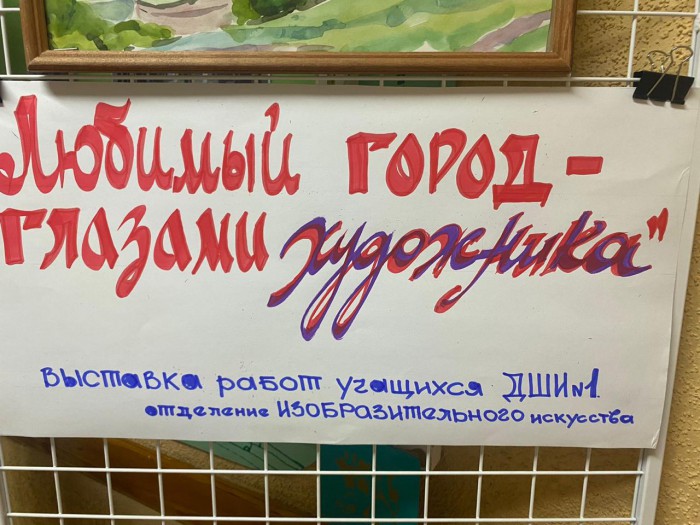 Любимый город -
глазами художника"
выставка работ учащихся ДШИ №1
отделение ИЗОБРАЗИТЕЛЬНОГО искусства